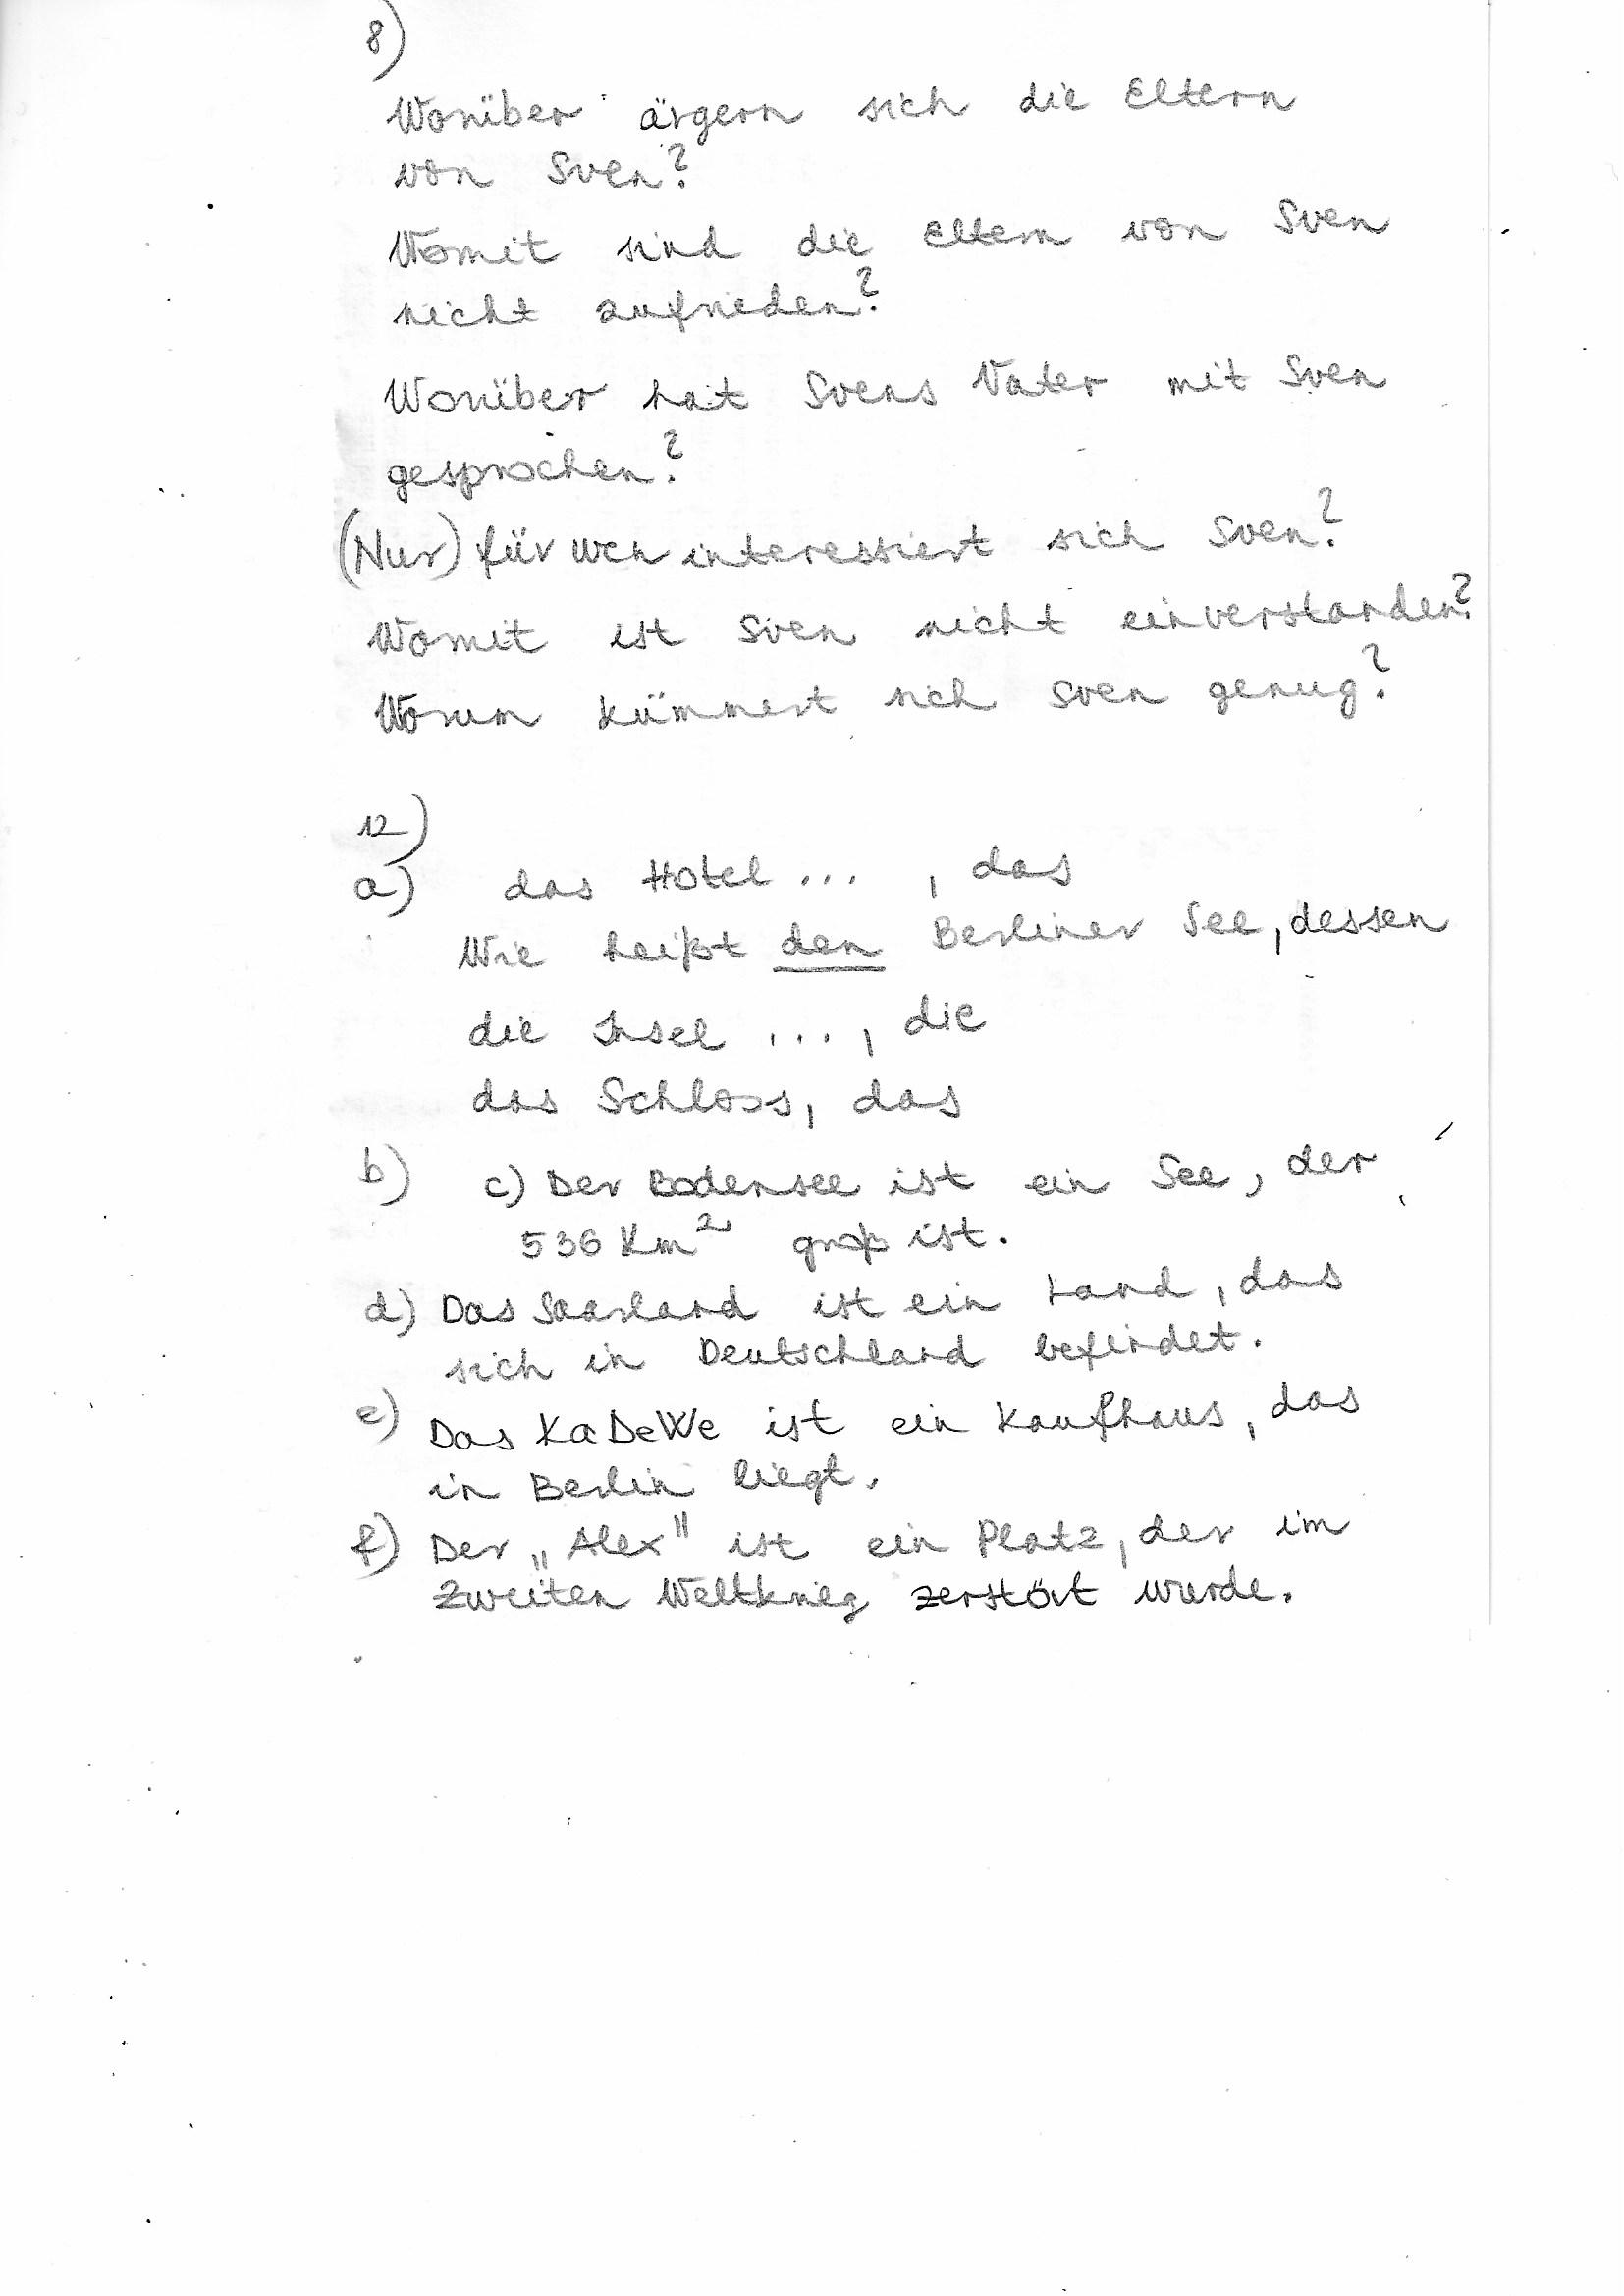 8)
Worüber ärgern sich die Eltern
von Sven?
Womit sind die Eltern von Sven
nicht zufrieden?
Worüber hat Svens Vater mit Sven
gesprochen?
(Nur) für wen interessiert sich Sven?
Womit ist Sven nicht einverstanden?
Worum kümmert sich Sven genug?
12)
a) das Hotel ... , das
Wie heißt den Berliner See, dessen
die Insel ... , die
das Schloss, das
b) c) Der Bodensee ist ein See, der
536 Km² groß ist.
d) Das Saarland ist ein Land, das
sich in Deutschland befindet.
e) Das KaDeWe ist ein Kaufhaus, das
in Berlin liegt.
f) Der „Alex" ist ein Platz, der im
Zweiten Weltkrieg zerstört wurde.